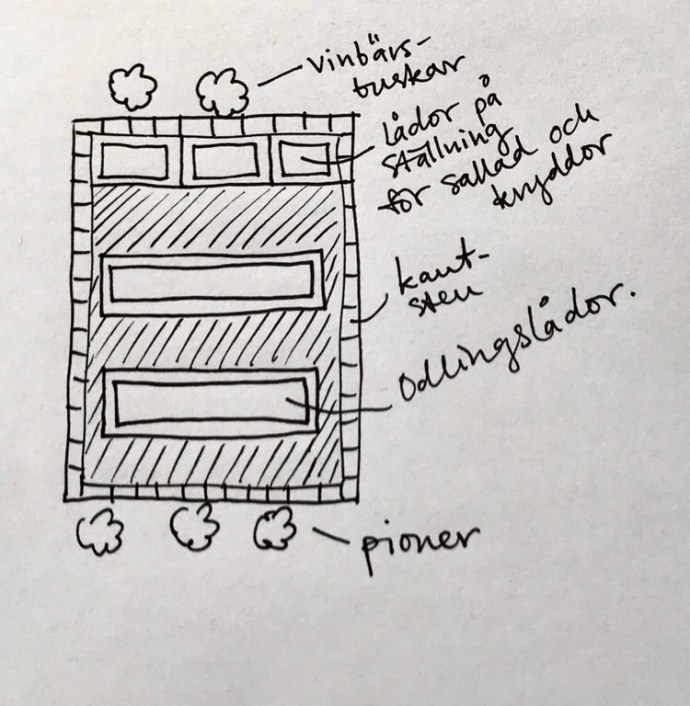 vinbärs-
buskar
Lådor på
ställning
för sallad och
kryddor
kant-
sten
Odlingslådor.
pioner